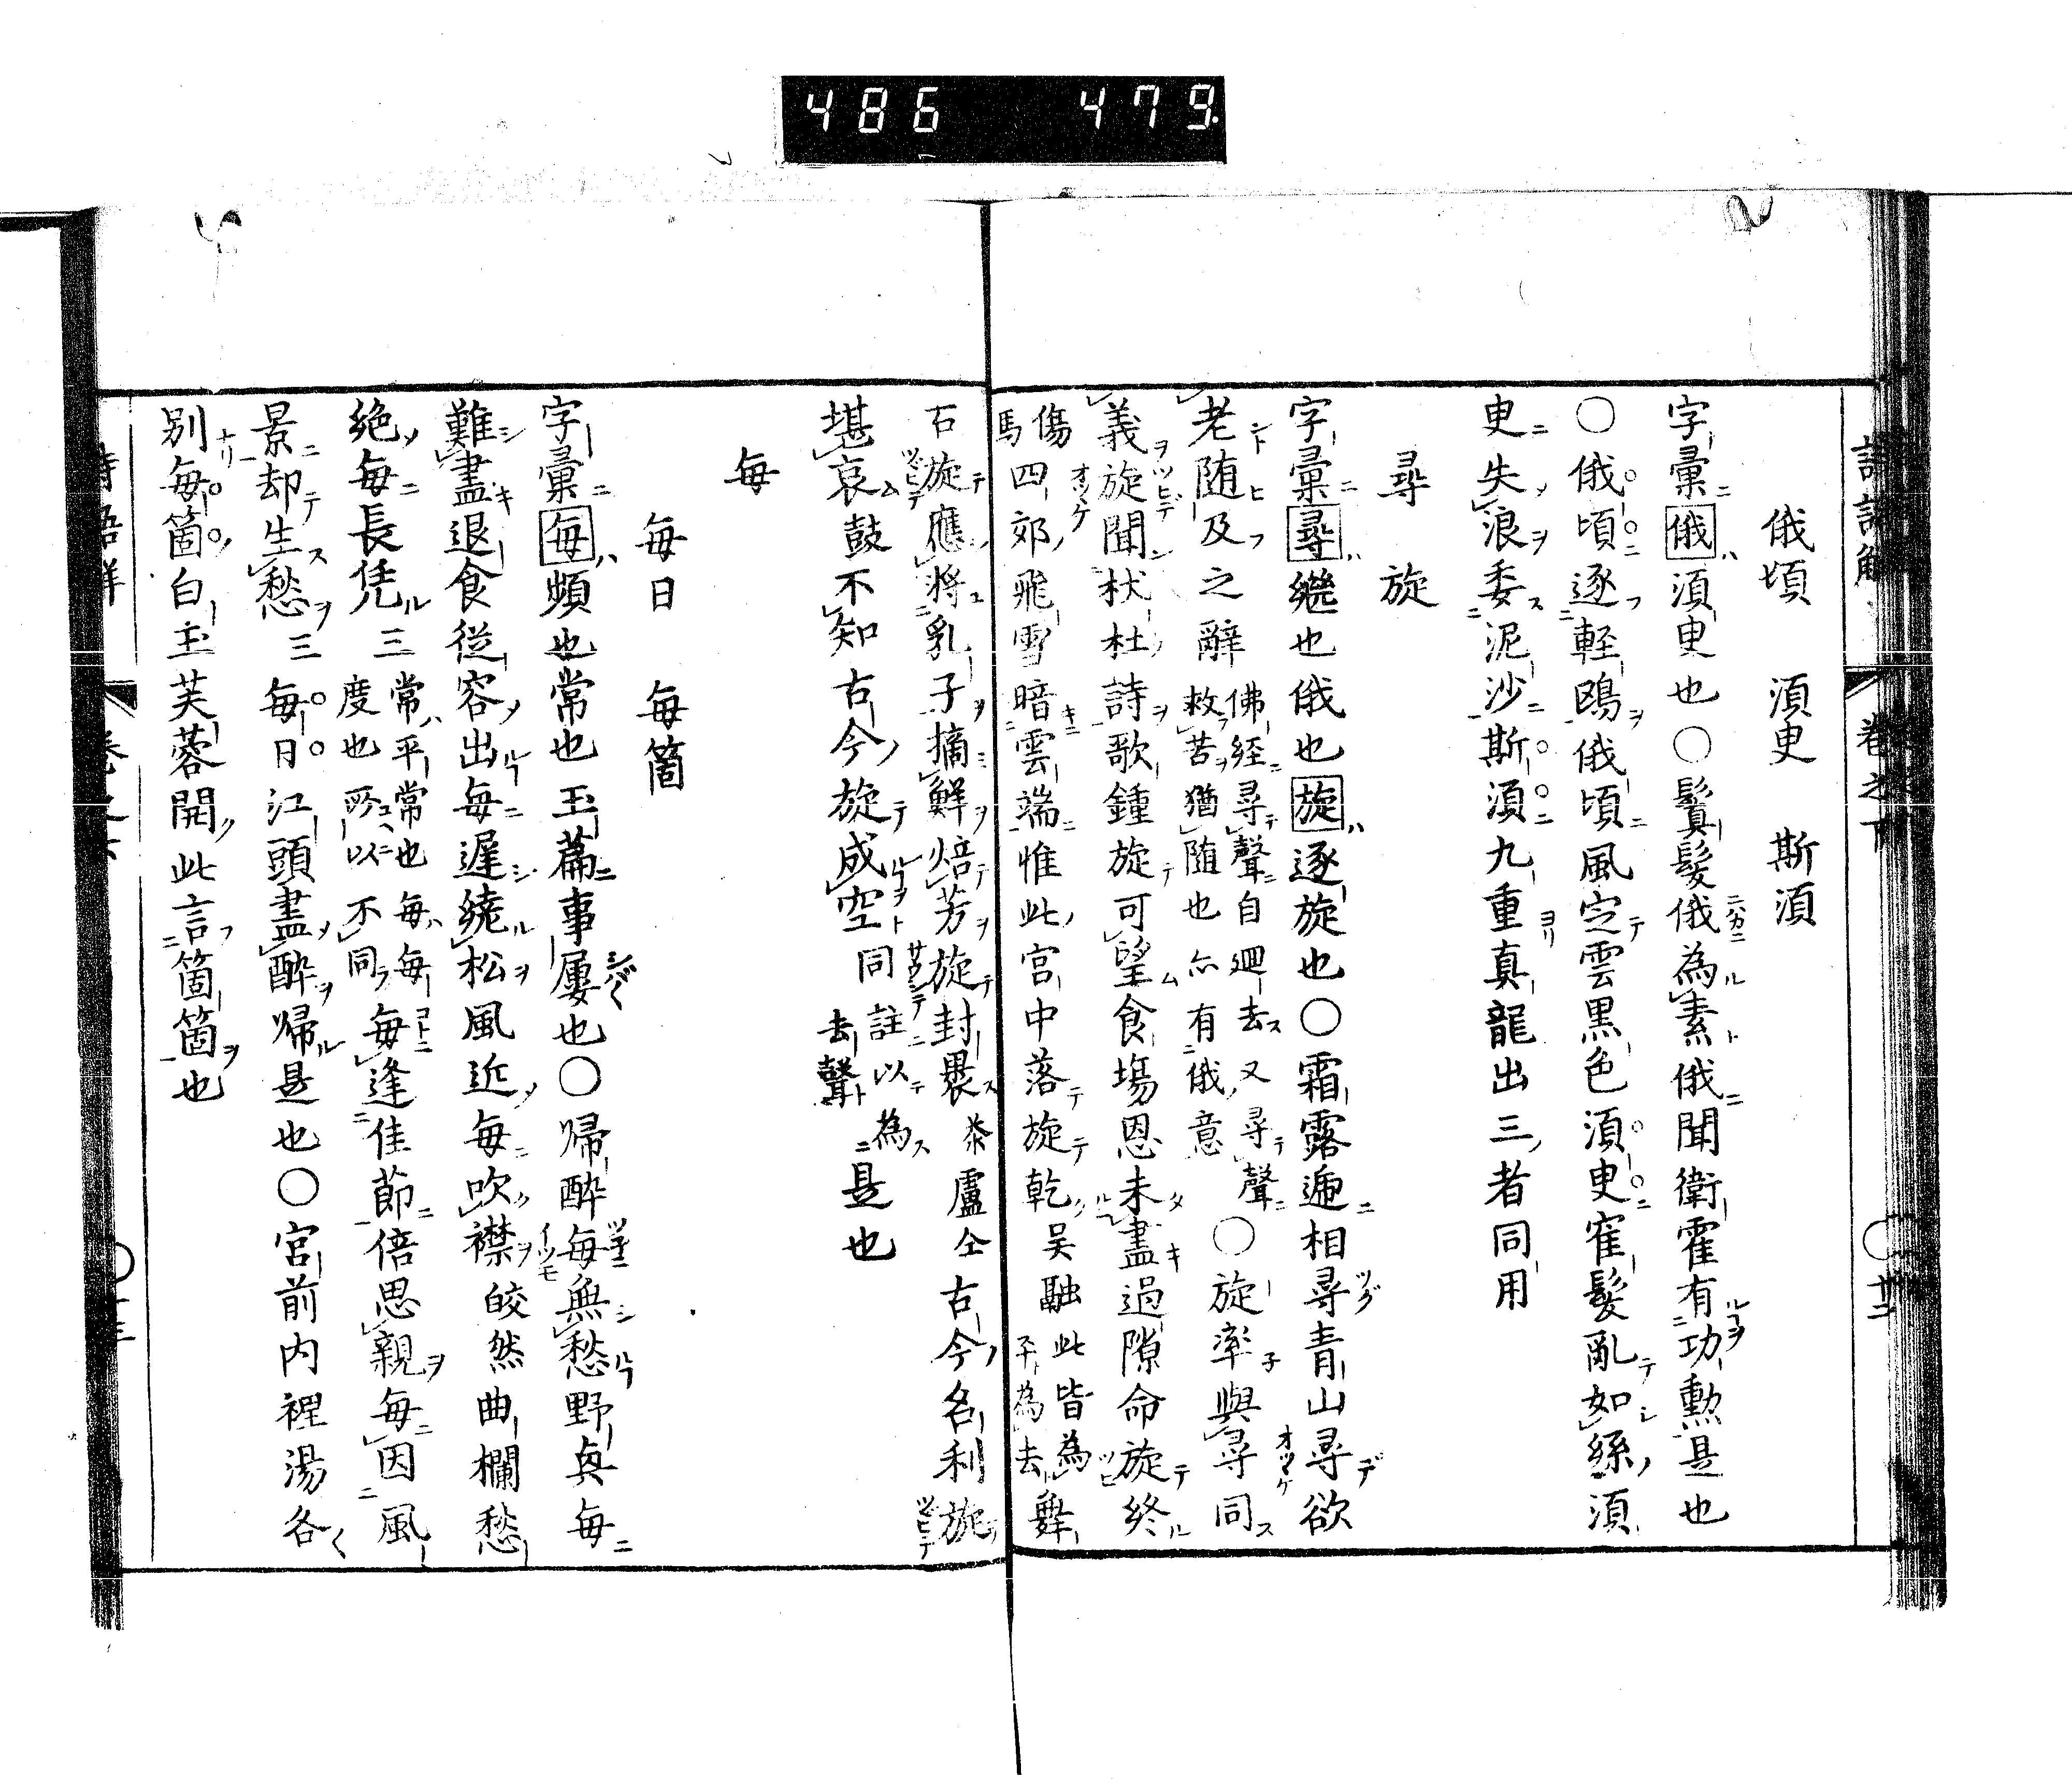 486 479
俄頃 須臾 斯須
字彙ニ俄ハ須臾也○鬢髮俄為素俄聞衛霍有功勲是也
○俄頃逐軽鴎俄頃風定雲黒色須臾寉髮亂如絲須
臾失浪委泥沙斯須九重真龍出三者同用
尋 旋
字彙ニ尋ハ繼也俄也旋ハ逐旋也○霜露逓相尋青山尋欲
老随及之辭佛経尋聲自廻去又尋聲
救苦猶随也亦有俄意○旋率與尋同
義旋聞杕杜詩歌鍾旋可望食塲恩未盡過隙命旋終
傷馬四郊飛雪暗雲端惟此宮中落旋乾吴融此皆為
平為去舞
石旋應將乳子摘鮮焙芳旋封褁盧仝古今名利旋
堪哀鼓不知古今旋成空同註以為
去聲是也
每
每日 每箇
字彙ニ每ハ頻也常也玉篇事屢也○帰酔每無愁野興每
難盡退食從容出每遅繞松風近每吹襟皎然曲欄愁
絶每長凭三常平常也每每
度也所以不同每逢佳節倍思親每因風
景却生愁三每日江頭盡酔帰是也○宮前内裡湯各
別每箇白玉芙蓉開此言箇箇也